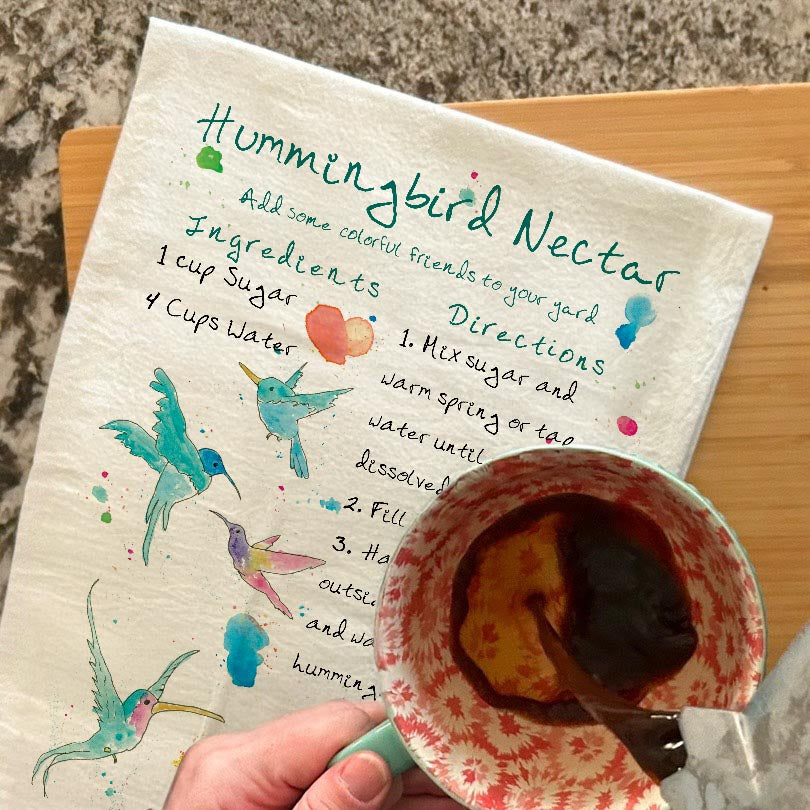 Hummingbird Nectar
Add some colorful friends to your yard
Ingredients
1 cup Sugar
4 Cups Water
Directions
1. Mix sugar and
warm spring or tap
water until
dissolved
2. Fill
3.
and